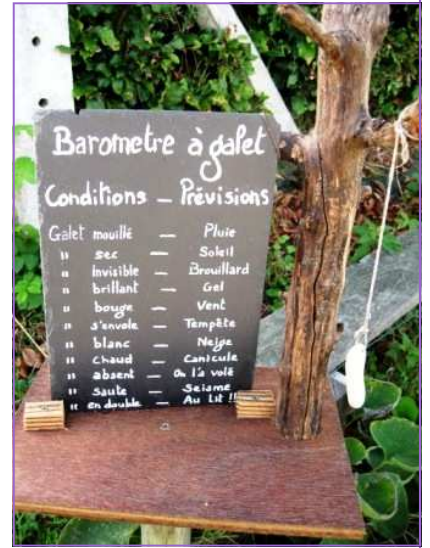 Barometre à galet
Conditions — Prévisions
Galet mouillé — Pluie
" sec — Soleil
" invisible — Brouillard
" brillant — Gel
" bouge — Vent
" s'envole — Tempête
" blanc — Neige
" chaud — Canicule
" absent — On l'a volé
" saute — Seisme
" en double — Au Lit !!